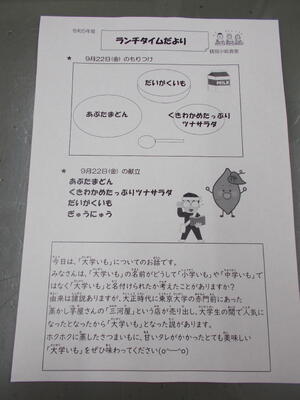 令和5年度
ランチタイムだより
★ 9月22日(金) のもりつけ
だいがくいも
MILK
あぶたまどん
くきわかめたっぷり
ツナサラダ
★ 9月22日(金) の献立
あぶたまどん
くきわかめたっぷりツナサラダ
だいがくいも
ぎゅうにゅう
今日は、「大学いも」についてのお話です。
みなさんは、「大学いも」の名前がどうして「小学いも」や「中学いも」で
はなく「大学いも」と名付けられたか考えたことがありますか?
由来は諸説ありますが、大正時代に東京大学の赤門前にあった
蒸かし芋屋さんの「三河屋」という店が売り出し、大学生の間で人気に
なったとなったから「大学いも」となった説があります。
ホクホクに蒸したさつまいもに、甘いタレがかかったとても美味しい
「大学いも」をぜひ味わってください(o^―^o)